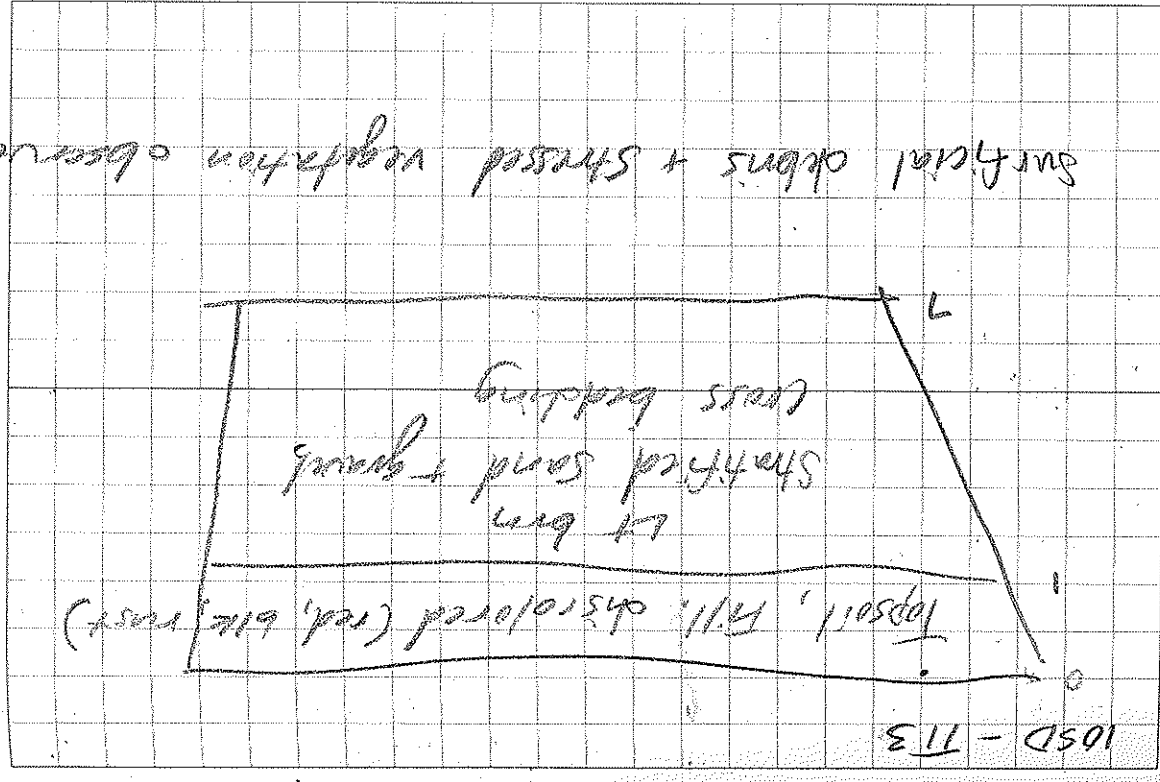 10SD - TT3
0
Topsoil, Fill, discolored (red, blk, rust)
1
Lt brn
Stratified sand + gravel
cross bedding
7
Surficial debris + stressed vegetation observe